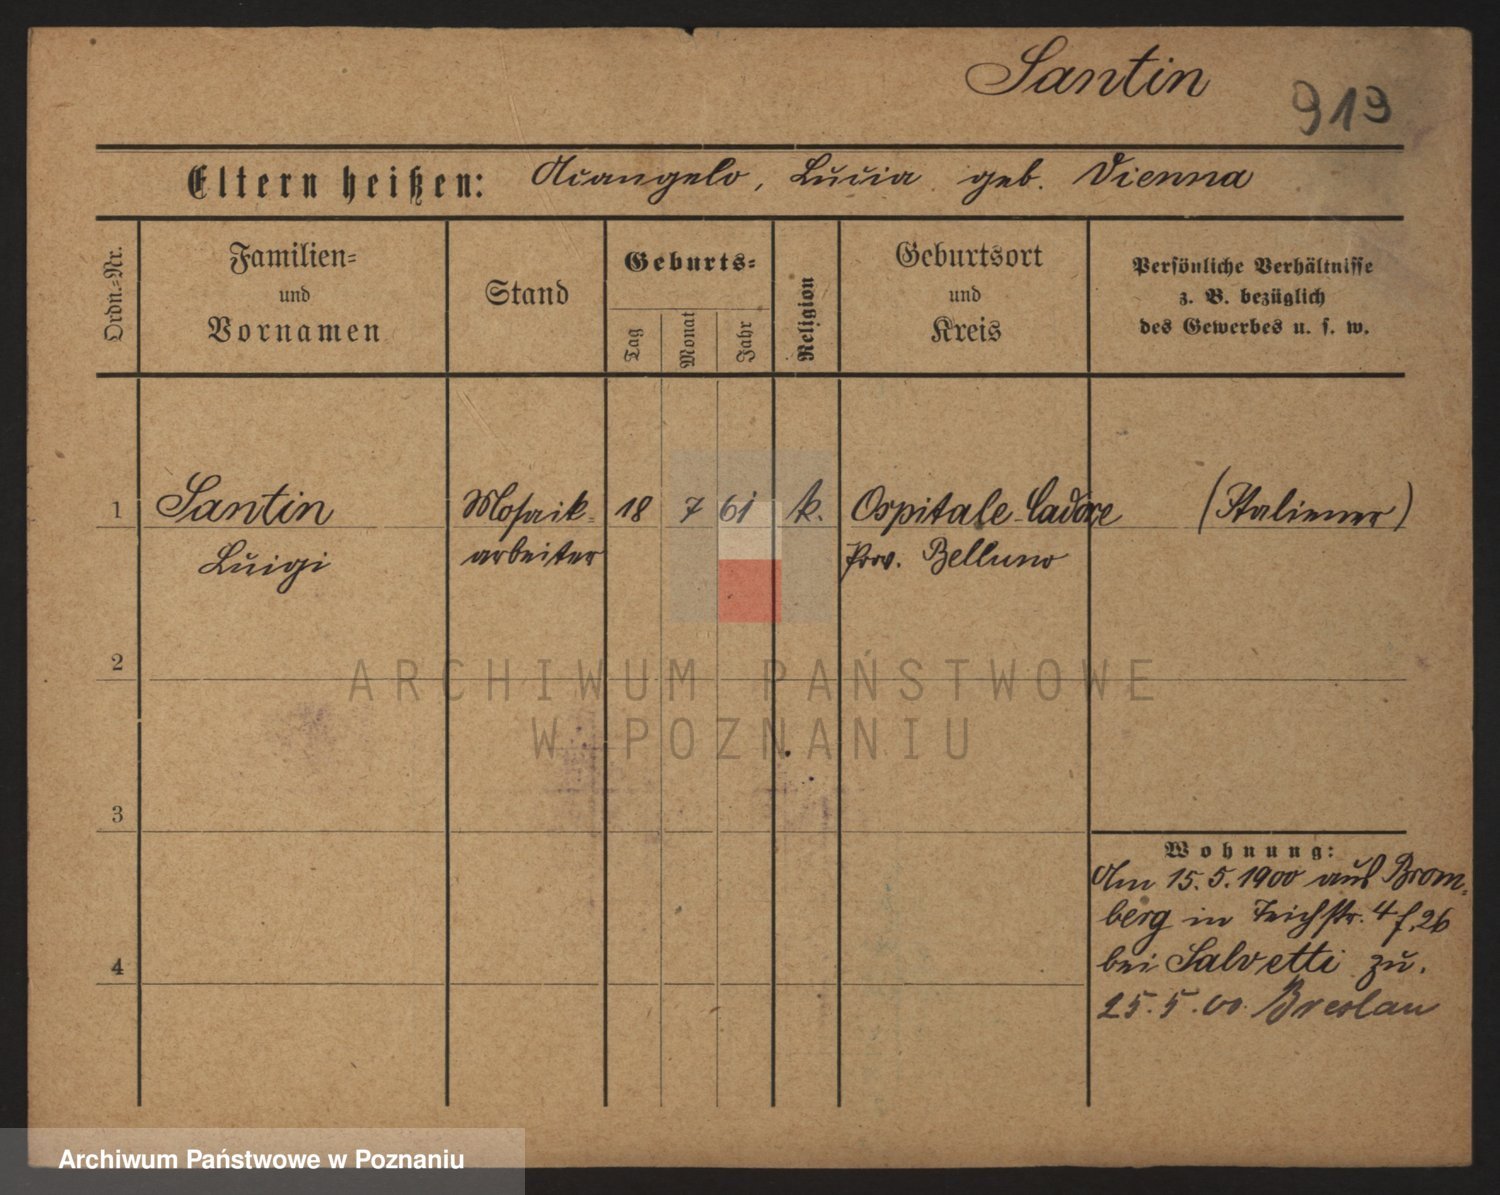 Santin
919
Eltern heißen: Acangelo, Lucia geb. Vienna
Ordn.-Nr.
Familien-
und
Vornamen
Stand
Geburts-
Tag
Monat
Jahr
Religion
Geburtsort
und
Kreis
Persönliche Verhältnisse
z. B. bezüglich
des Gewerbes u. s. w.
1 Santin Mosaik- 18 7 61 k. Ospitale-Cadore (Italiener)
Luigi arbeiter Prov. Belluno
2
ARCHIWUM PAŃSTWOWE
W POZNANIU
3
Wohnung:
Am 15.5.1900 aus Brom-
berg in Teichstr. 4
bei Salvetti zu.
4
25.5.00 Breslau
Archiwum Państwowe w Poznaniu